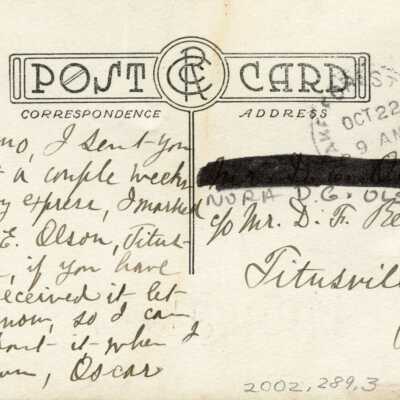 POST CARD
CORRESPONDENCE
ADDRESS
OCT 22
9 AM
no, I sent you
a couple weeks
express, I marked
E. Olson, Titus-
, if you have
received it let
know, so I can
it when I
, Oscar
NORA D.E. OLS
c/o Mr. D. F. Be
Titusvil
2002.289.3